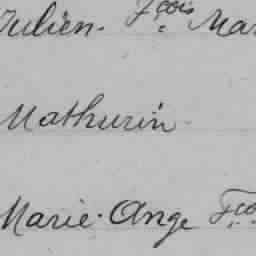 Julien. Fçois Mar
Mathurin
Marie-Ange Fço